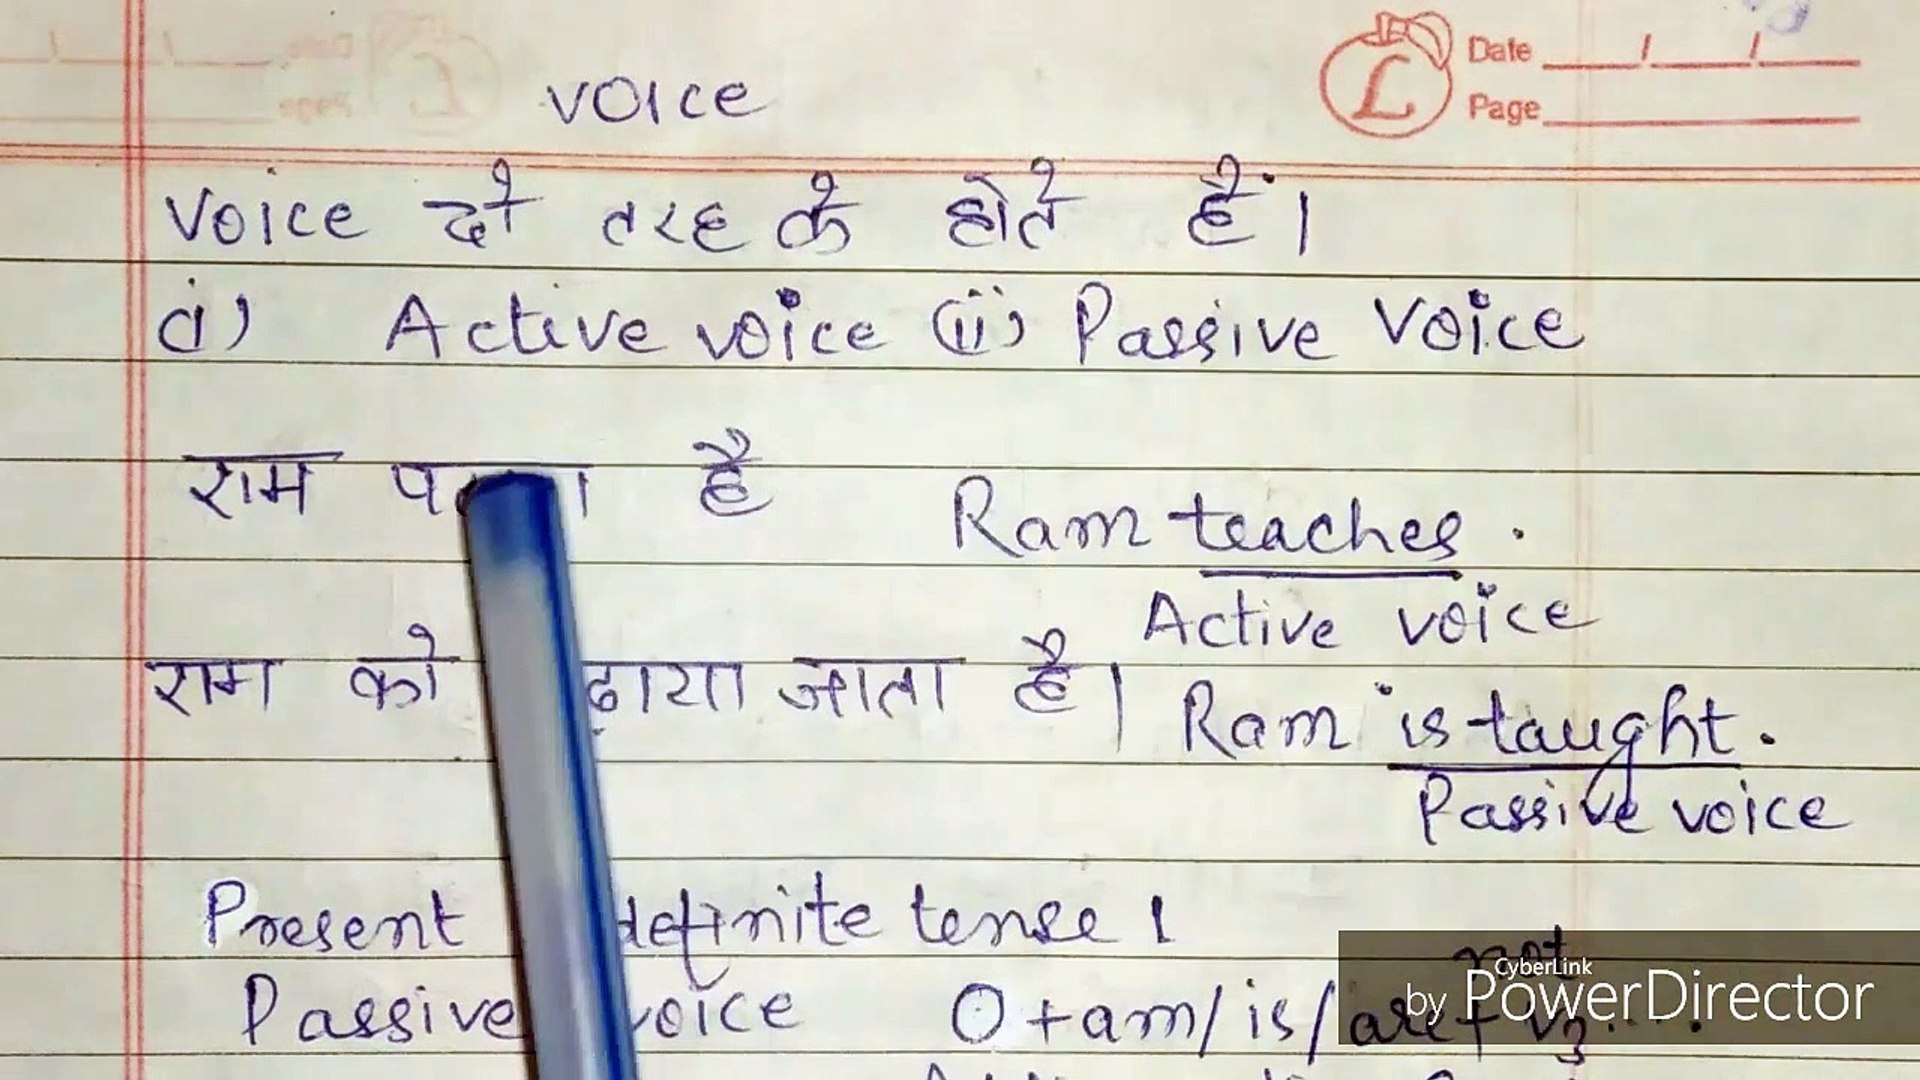 Date / /
Page
voice
voice दो तरह के होते हैं।
(i) Active voice (ii) Passive voice
राम है Ram teaches.
Active voice
राम को जाता है। Ram is taught.
Passive voice
Present tense।
not
Passive voice O + am/is/are + V3....
CyberLink
by PowerDirector